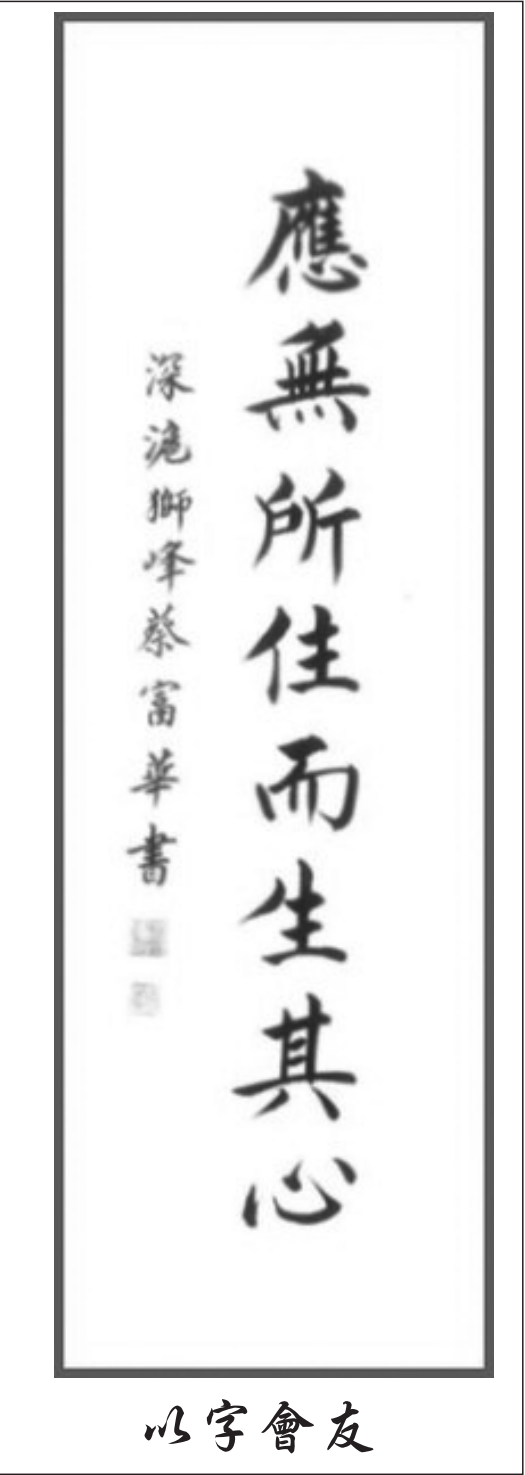 應無所住而生其心
深滬獅峰蔡富華書
以字會友